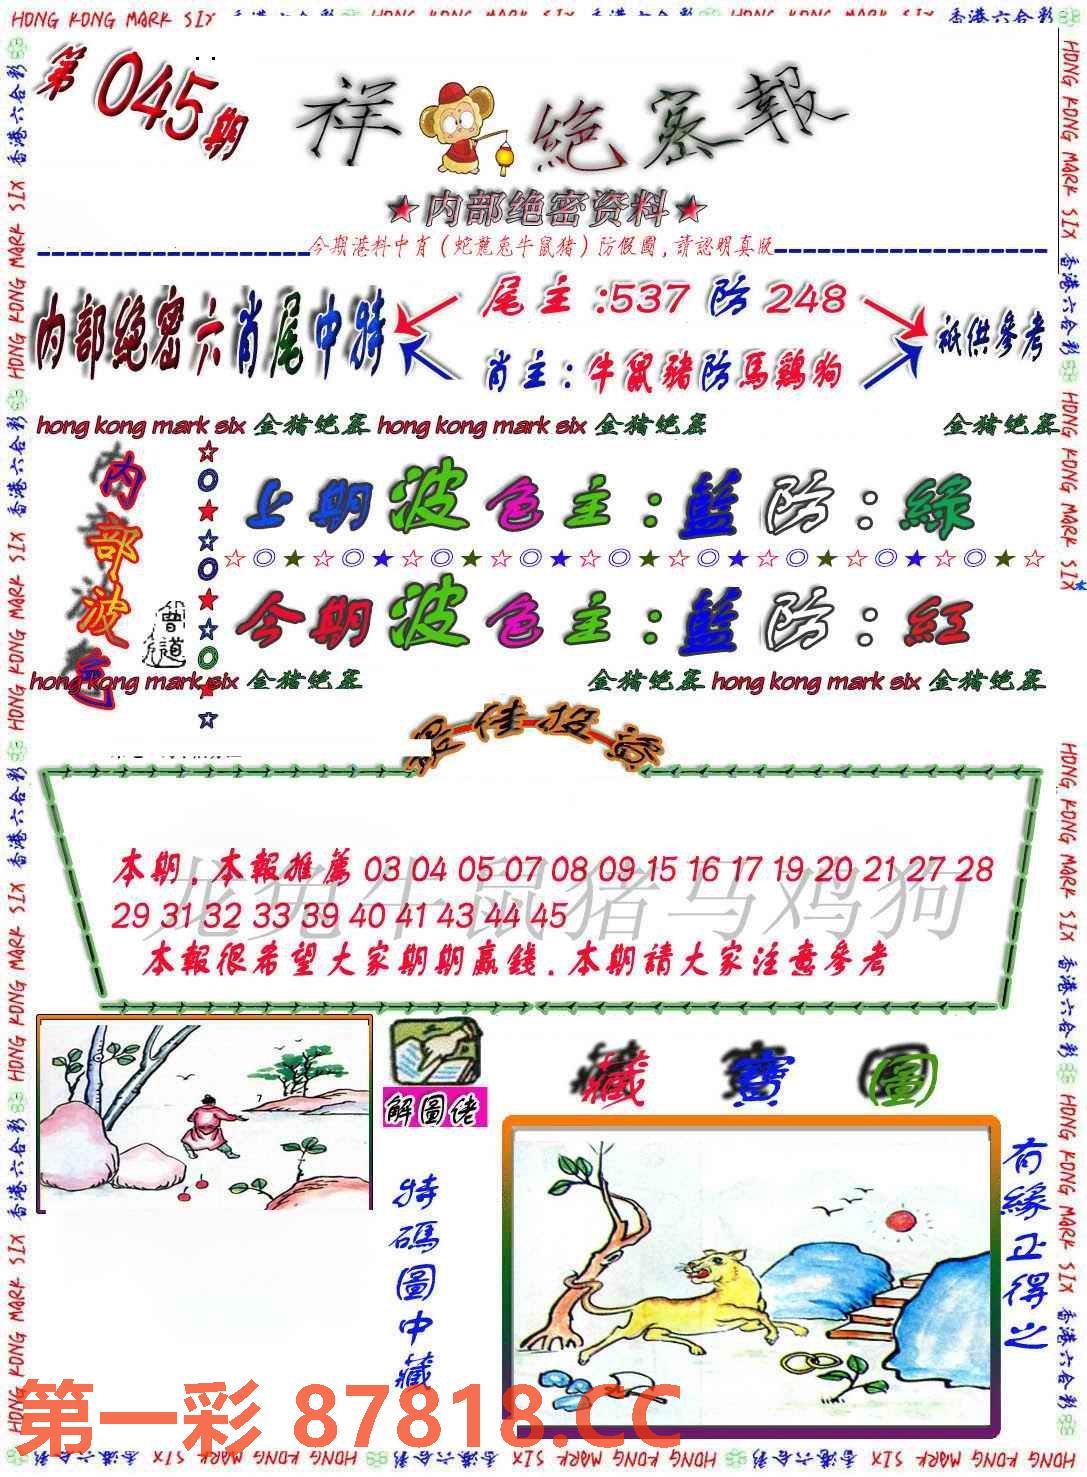 HONG KONG MARK SIX 香港六合彩
第045期
祥 絶密報
★内部绝密资料★
今期港料中肖(蛇龍兔牛鼠猪)防假圖,請認明真版
内部绝密六肖尾中特
尾主:537防248
肖主:牛鼠豬防馬鷄狗
祇供參考
hong kong mark six 金猪绝密 hong kong mark six 金猪绝密
金猪绝密
内部波色
上期波色主:藍防:綠
☆◎★☆◎★☆◎★☆◎★☆◎★☆◎★☆◎★☆◎★☆◎★☆
今期波色主:藍防:紅
曾道
hong kong mark six 金猪绝密
金猪绝密 hong kong mark six 金猪绝密
最佳投意
龙兔牛鼠猪马鸡狗
本期,本報推薦 03 04 05 07 08 09 15 16 17 19 20 21 27 28
29 31 32 33 39 40 41 43 44 45
本報很希望大家期期贏錢.本期請大家注意參考
7
解圖佬
藏寶圖
特碼圖中藏
有緣正得之
第一彩 87818.CC
HONG KONG MARK SIX 香港六合彩